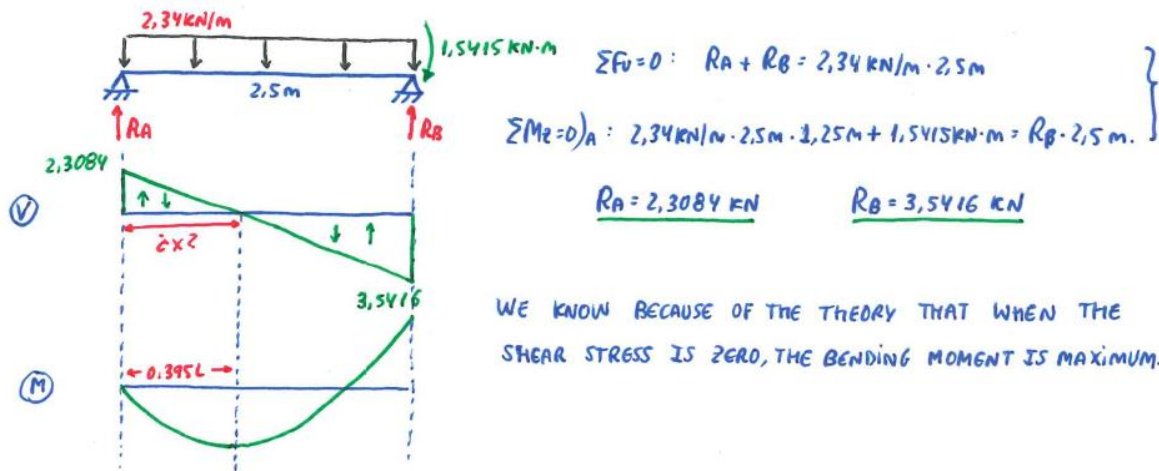 2,34KN/m
1,5415 KN·m
2,5m
RA
RB
ΣFv=0: RA + RB = 2,34 KN/m · 2,5m
ΣMz=0)A: 2,34KN/m · 2,5m · 1,25m + 1,5415KN·m = RB · 2,5 m.
RA = 2,3084 KN
RB = 3,5416 KN
2,3084
V
¿x?
3,5416
WE KNOW BECAUSE OF THE THEORY THAT WHEN THE
SHEAR STRESS IS ZERO, THE BENDING MOMENT IS MAXIMUM.
M
0.395L